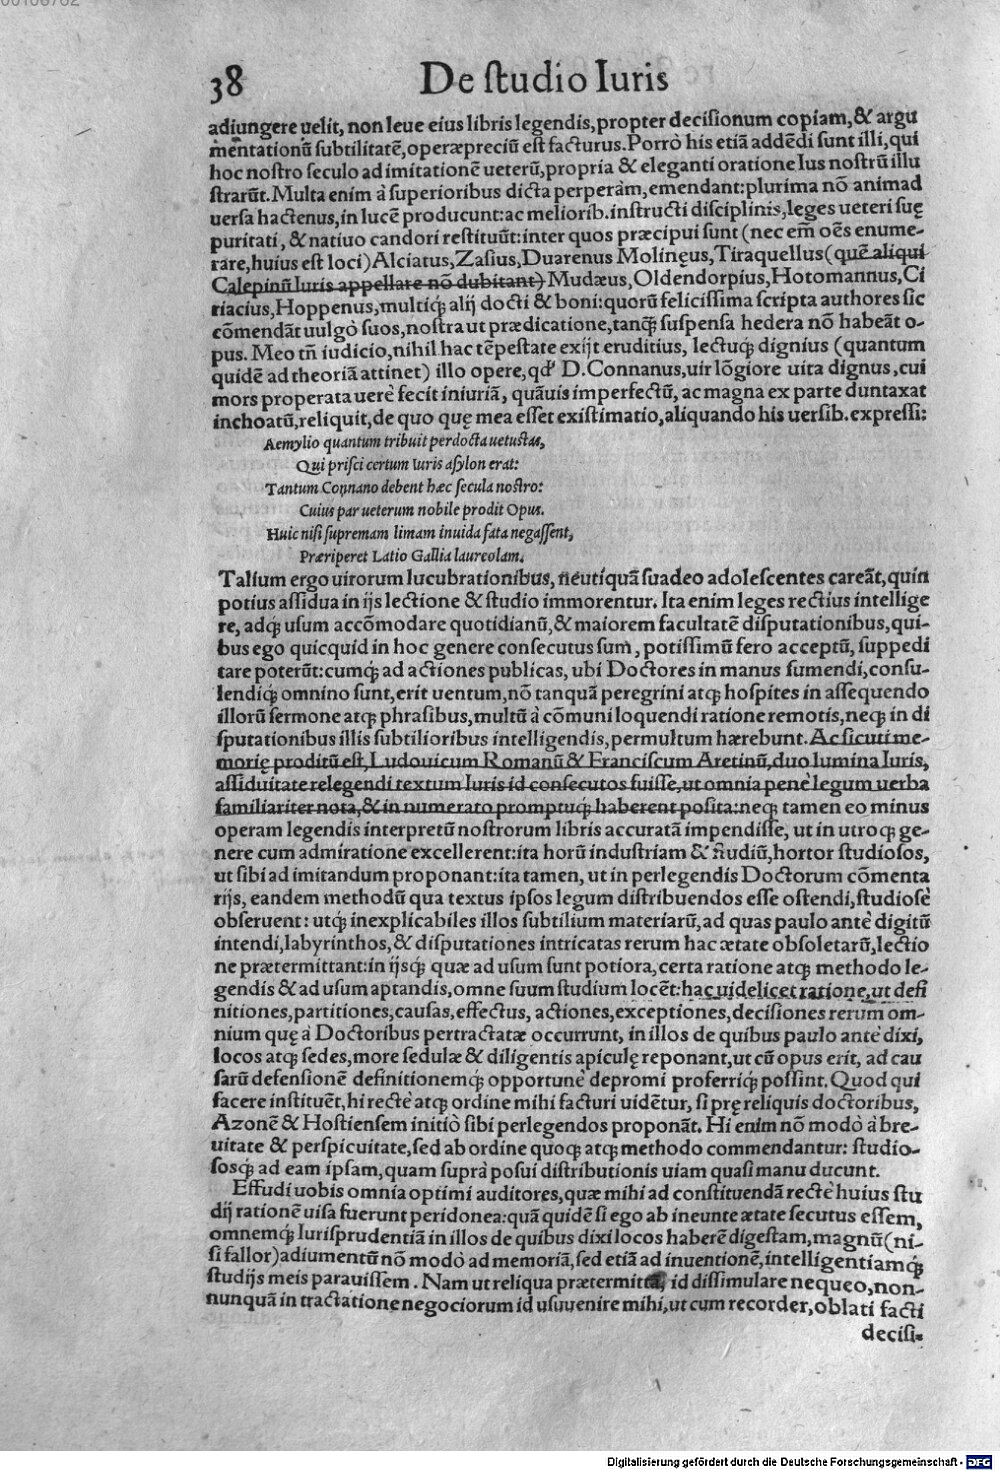 00108762
38 De ſtudio Iuris
adiungere uelit, non leue eius libris legendis, propter deciſionum copiam, & argu
mentationũ ſubtilitatẽ, operæpreciũ eſt facturus. Porrò his etiã addẽdi ſunt illi, qui
hoc noſtro ſeculo ad imitationẽ ueterũ, propria & eleganti oratione Ius noſtrũ illu
ſtrarũt. Multa enim à ſuperioribus dicta perperàm, emendant: plurima nõ animad
uerſa hactenus, in lucẽ producunt: ac meliorib. inſtructi diſciplinis, leges ueteri ſuę
puritati, & natiuo candori reſtituũt: inter quos præcipui ſunt (nec em̃ oẽs enume-
rare, huius eſt loci) Alciatus, Zaſius, Duarenus Molinęus, Tiraquellus (quẽ aliqui
Calepinũ Iuris appellare nõ dubitant) Mudæus, Oldendorpius, Hotomannus, Ci
riacius, Hoppenus, multiq́ꝫ alij docti & boni: quorũ feliciſſima ſcripta authores ſic
cõmendãt uulgò ſuos, noſtra ut prædicatione, tanq̃ꝫ ſuſpenſa hedera nõ habeãt o-
pus. Meo tñ iudicio, nihil hac tẽpeſtate exijt eruditius, lectuq́ꝫ dignius (quantum
quidẽ ad theoriã attinet) illo opere, qd' D. Connanus, uir lõgiore uita dignus, cui
mors properata uerè fecit iniuriã, quãuis imperfectũ, ac magna ex parte duntaxat
inchoatũ, reliquit, de quo quę mea eſſet exiſtimatio, aliquando his uerſib. expreſſi:
Aemylio quantum tribuit perdocta uetuſtas,
Qui priſci certum Iuris aſylon erat:
Tantum Connano debent hæc ſecula noſtro:
Cuius par ueterum nobile prodit Opus.
Huic niſi ſupremam limam inuida fata negaſſent,
Præriperet Latio Gallia laureolam.
Talium ergo uirorum lucubrationibus, neutiquã ſuadeo adoleſcentes careãt, quin
potius aſſidua in ijs lectione & ſtudio immorentur. Ita enim leges rectius intellige
re, adq́ꝫ uſum accõmodare quotidianũ, & maiorem facultatẽ diſputationibus, qui-
bus ego quicquid in hoc genere conſecutus ſum, potiſſimũ fero acceptũ, ſuppedi
tare poterũt: cumq́ꝫ ad actiones publicas, ubi Doctores in manus ſumendi, conſu-
lendiq́ꝫ omnino ſunt, erit uentum, nõ tanquã peregrini atqꝫ hoſpites in aſſequendo
illorũ ſermone atqꝫ phraſibus, multũ à cõmuni loquendi ratione remotis, neqꝫ in di
ſputationibus illis ſubtilioribus intelligendis, permultum hærebunt. Ac ſicuti me-
morię proditũ eſt, Ludouicum Romanũ & Franciſcum Aretinũ, duo lumina Iuris,
aſſiduitate relegendi textum Iuris id conſecutos fuiſſe, ut omnia penè legum uerba
familiariter nota, & in numerato promptuq́ꝫ haberent poſita: neqꝫ tamen eo minus
operam legendis interpretũ noſtrorum libris accuratã impendiſſe, ut in utroqꝫ ge-
nere cum admiratione excellerent: ita horũ induſtriam & ſtudiũ, hortor ſtudioſos,
ut ſibi ad imitandum proponant: ita tamen, ut in perlegendis Doctorum cõmenta
rijs, eandem methodũ qua textus ipſos legum diſtribuendos eſſe oſtendi, ſtudioſè
obſeruent: utq́ꝫ inexplicabiles illos ſubtilium materiarũ, ad quas paulo antè digitũ
intendi, labyrinthos, & diſputationes intricatas rerum hac ætate obſoletarũ, lectio
ne prætermittant: in ijsq́ꝫ quæ ad uſum ſunt potiora, certa ratione atqꝫ methodo le-
gendis & ad uſum aptandis, omne ſuum ſtudium locẽt: hac uidelicet ratione, ut defi
nitiones, partitiones, cauſas, effectus, actiones, exceptiones, deciſiones rerum om-
nium quę à Doctoribus pertractatæ occurrunt, in illos de quibus paulo antè dixi,
locos atqꝫ ſedes, more ſedulæ & diligentis apiculę reponant, ut cũ opus erit, ad cau
ſarũ defenſionẽ definitionemq́ꝫ opportunè depromi proferriq́ꝫ poſſint. Quod qui
facere inſtituẽt, hi rectè atqꝫ ordine mihi facturi uidẽtur, ſi prę reliquis doctoribus,
Azonẽ & Hoſtienſem initiò ſibi perlegendos proponãt. Hi enim nõ modò à bre-
uitate & perſpicuitate, ſed ab ordine quoqꝫ atqꝫ methodo commendantur: ſtudio-
ſosq́ꝫ ad eam ipſam, quam ſuprà poſui diſtributionis uiam quaſi manu ducunt.
Effudi uobis omnia optimi auditores, quæ mihi ad conſtituendã rectè huius ſtu
dij rationẽ uiſa fuerunt peridonea: quã quidẽ ſi ego ab ineunte ætate ſecutus eſſem,
omnemq́ꝫ Iuriſprudentiã in illos de quibus dixi locos haberẽ digeſtam, magnũ (ni-
ſi fallor) adiumentũ nõ modò ad memoriã, ſed etiã ad inuentionẽ, intelligentiamq́ꝫ
ſtudijs meis parauiſſem. Nam ut reliqua prætermittã, id diſſimulare nequeo, non-
nunquã in tractatione negociorum id uſuuenire mihi, ut cum recorder, oblati facti
deciſi-
Digitalisierung gefördert durch die Deutsche Forschungsgemeinschaft - DFG